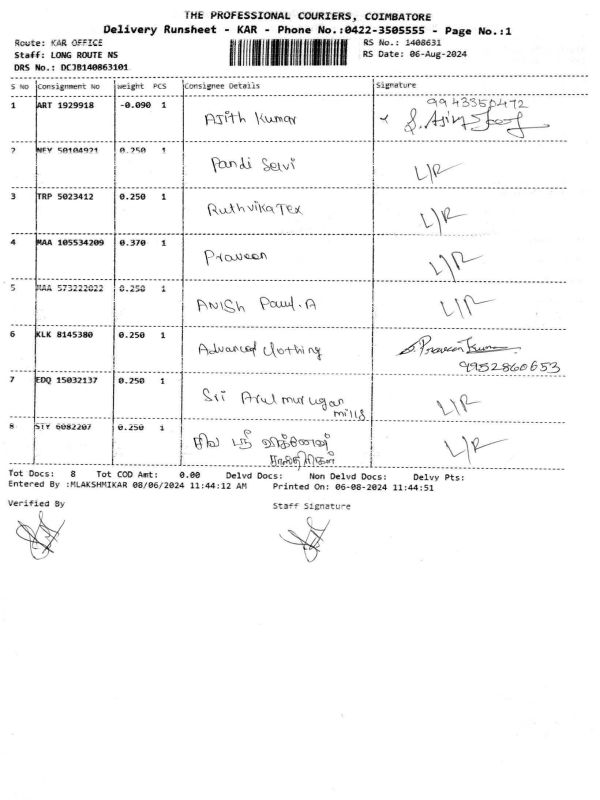 THE PROFESSIONAL COURIERS, COIMBATORE
Delivery Runsheet - KAR - Phone No.:0422-3505555 - Page No.:1
Route: KAR OFFICE RS No.: 1408631
Staff: LONG ROUTE NS RS Date: 06-Aug-2024
DRS No.: DCJB140863101
S No Consignment No Weight PCS Consignee Details Signature
1 ART 1929918 -0.090 1 Ajith Kumar 9943350472
2 NEY 50104921 0.250 1 Pandi Selvi L/R
3 TRP 5023412 0.250 1 Ruthvika Tex L/R
4 MAA 105534209 0.370 1 Praveen L/R
5 MAA 573222022 0.250 1 ANISh Paul.A L/R
6 KLK 8145380 0.250 1 Advanced clothing S. Praveen Kumar
9952860653
7 EDQ 15032137 0.250 1 Sri Arulmurugan L/R
mills
8 STY 6082207 0.250 1 L/R
Tot Docs: 8 Tot COD Amt: 0.00 Delvd Docs: Non Delvd Docs: Delvy Pts:
Entered By :MLAKSHMIKAR 08/06/2024 11:44:12 AM Printed On: 06-08-2024 11:44:51
Verified By Staff Signature